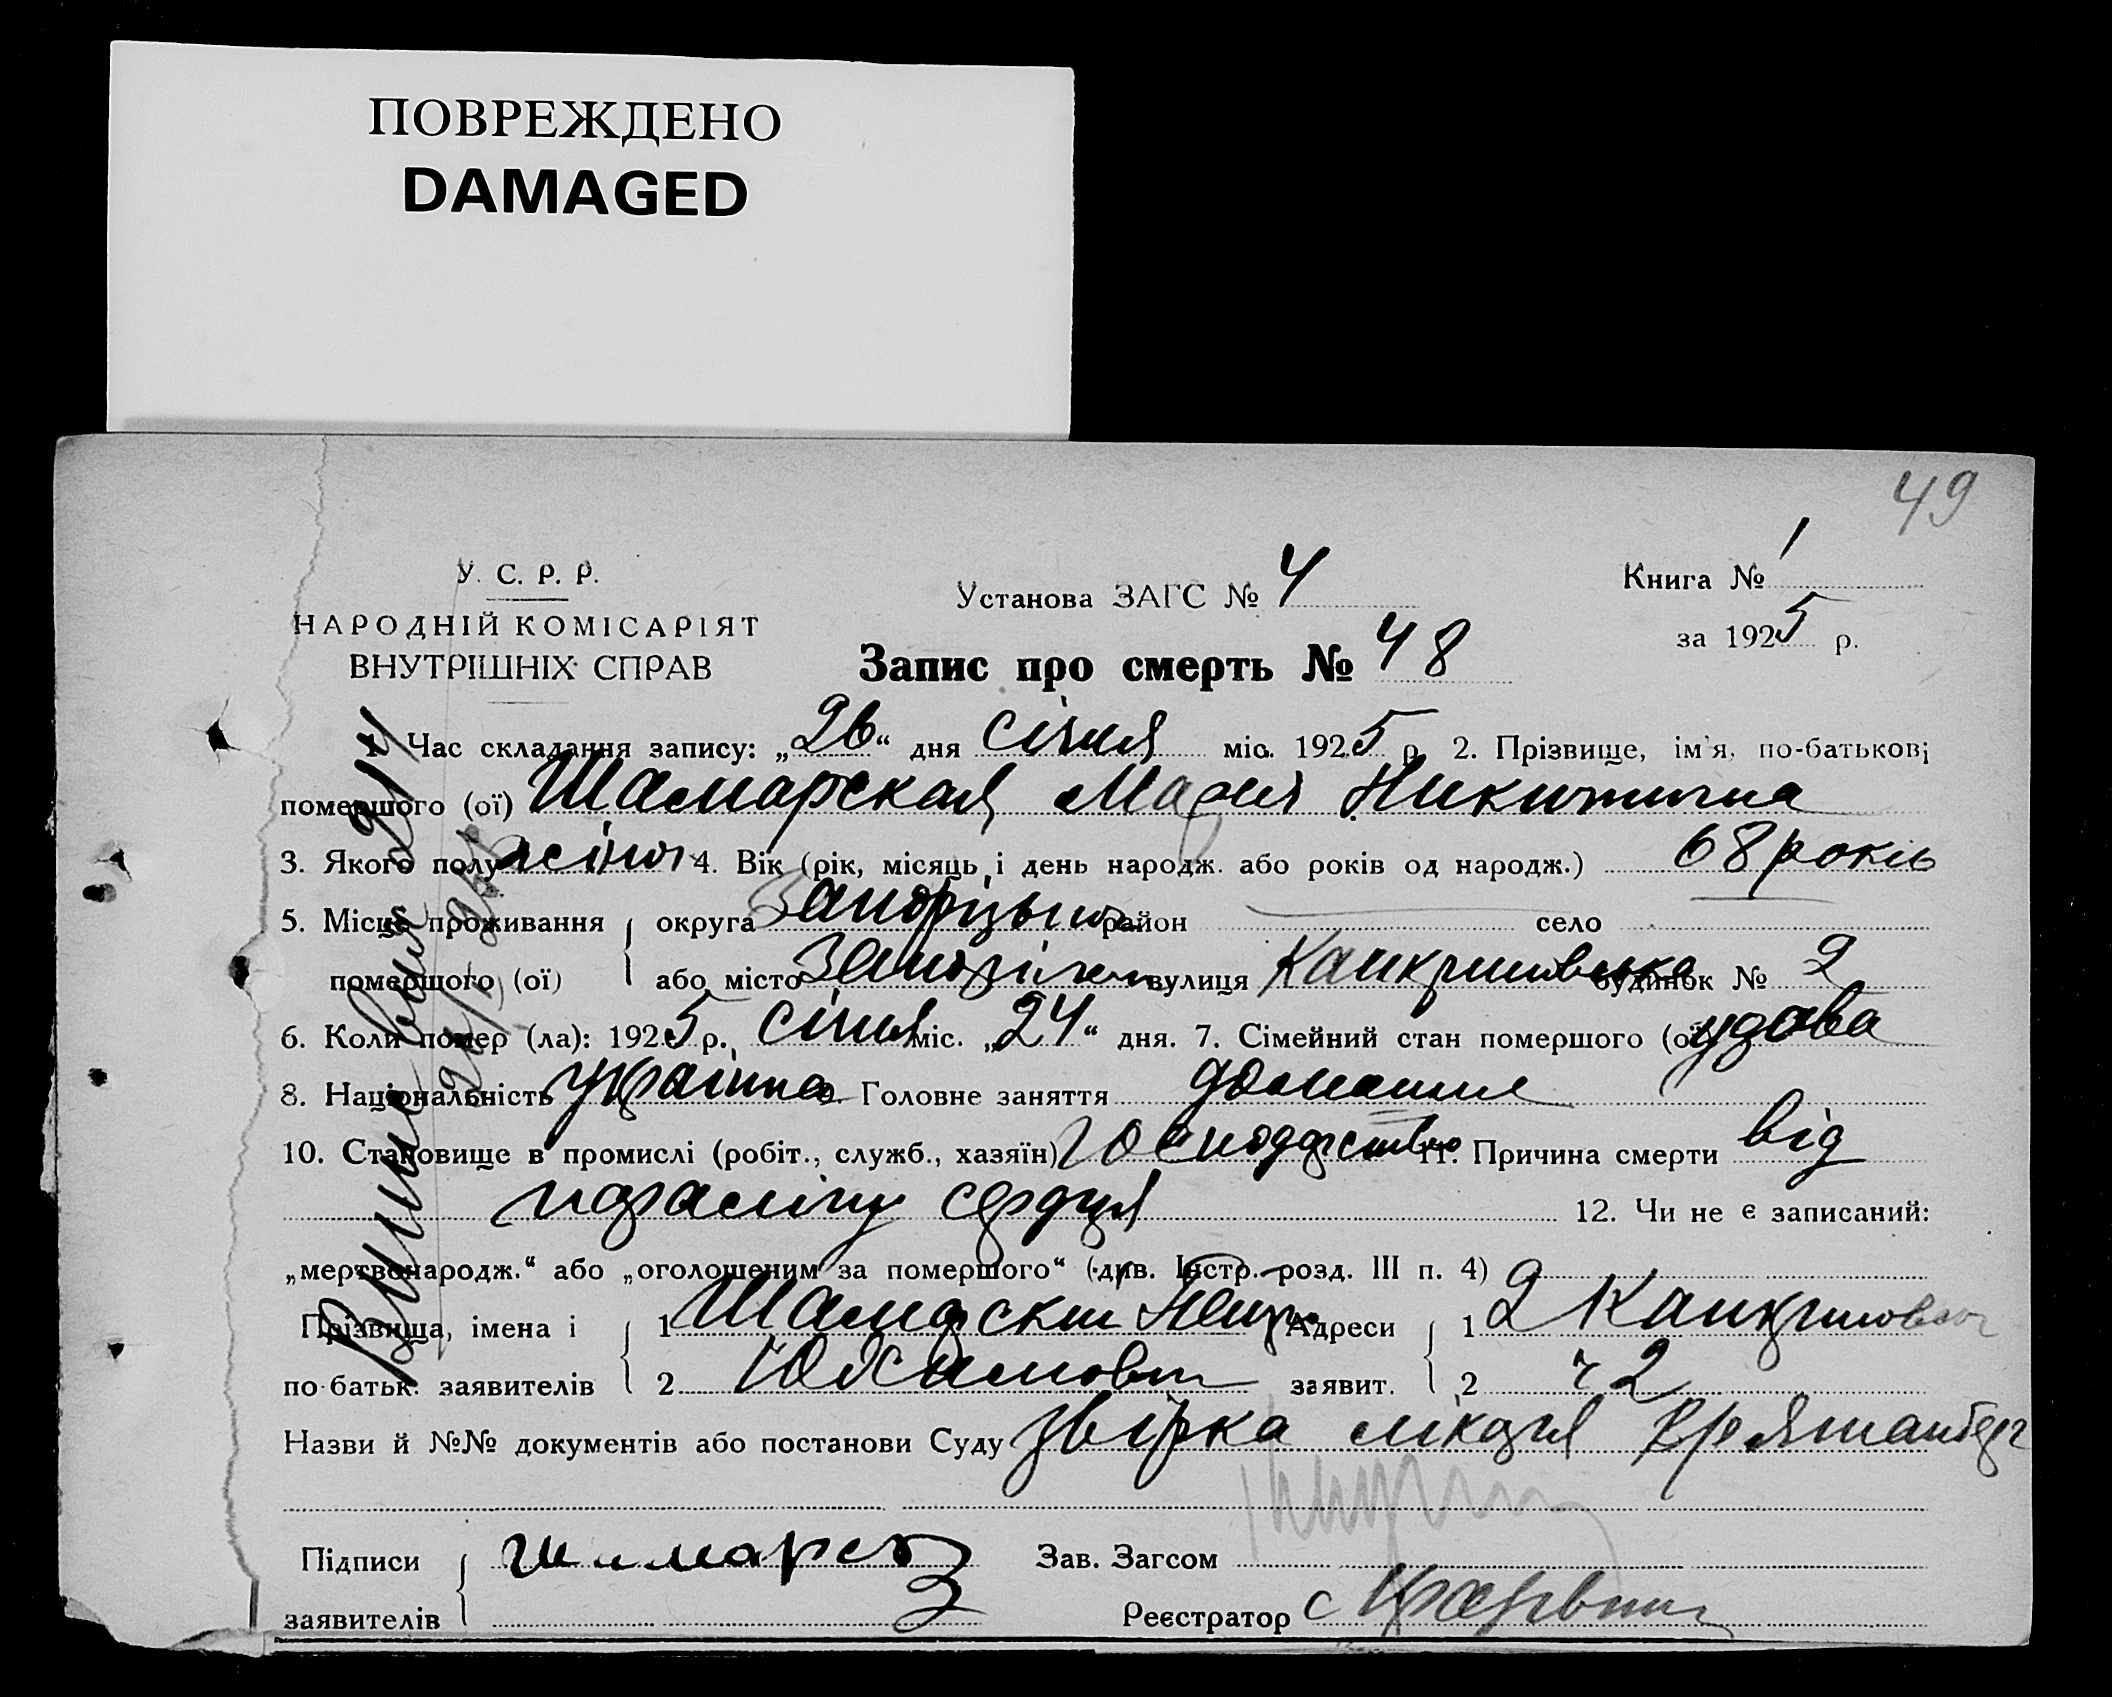 ПОВРЕЖДЕНО
DAMAGED
49
У. С. Р. Р.
НАРОДНІЙ КОМІСАРІЯТ
ВНУТРІШНІХ СПРАВ
Установа ЗАГС № 4
Книга № 1
за 1925 р.
Запис про смерть № 48
1. Час складання запису: „26“ дня січня міс. 1925 р. 2. Прізвище, ім'я, по-батькові
помершого (ої) Шамарская Мария Никитична
3. Якого полу жіноч 4. Вік (рік, місяць і день народж. або років од народж.) 68 років
5. Місце проживання округа Запоріzька район село
помершого (ої) або місто Запоріжжя вулиця будинок № 2
6. Коли помер (ла): 1925 р. січня міс. „24“ дня. 7. Сімейний стан помершого (ої) удова
8. Національність українка 9. Головне заняття домашнє
10. Становище в промислі (робіт., служб., хазяїн) господарство 11. Причина смерти від
паралічу серця 12. Чи не є записаний:
„мертвонародж.“ або „оголошеним за помершого“ (див. Інстр. розд. III п. 4)
Прізвища, імена і 1 Шамарский Адреси 1 2
по-батьк. заявителів 2 заявит. 2 ч 2
Назви й №№ документів або постанови Суду довірка лікаря
Підписи Шамарск Зав. Загсом
заявителів Реєстратор